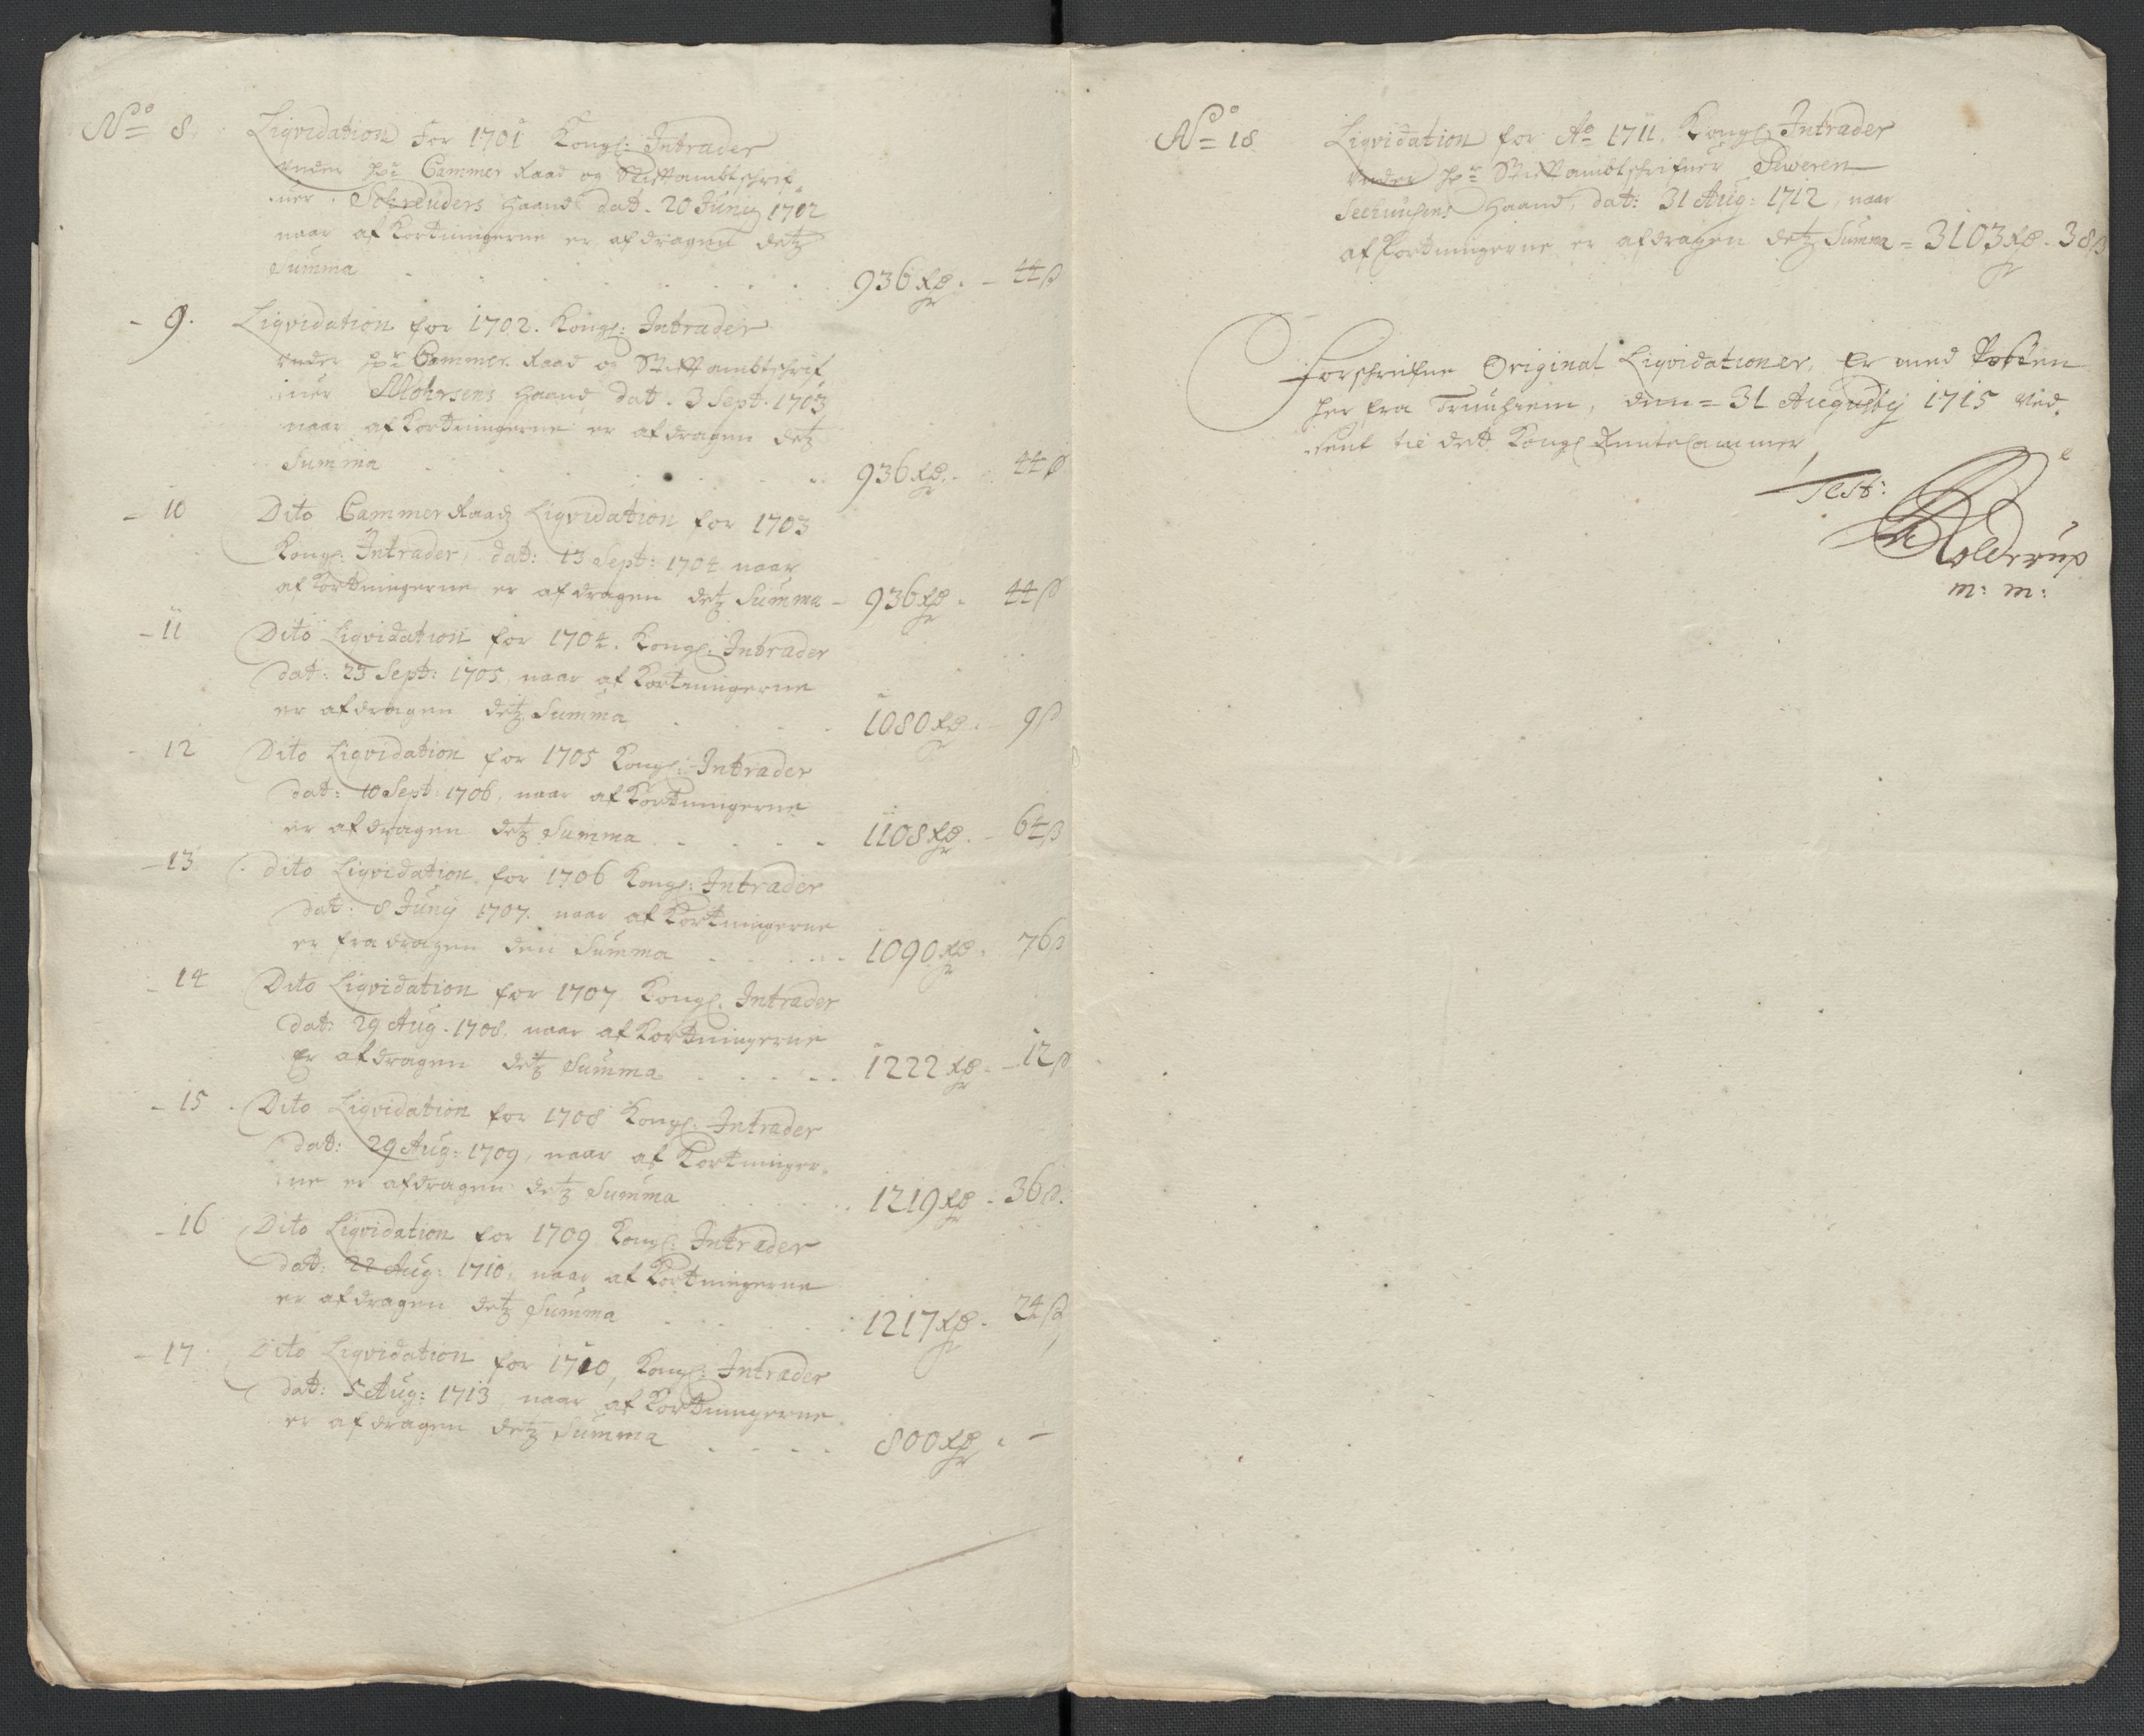 No 8. Liqvidation For 1701 Kongl: Intrader
under hr Cammer Raad og Stiftambtschrif-
ver Schreuders Haand dat. 20 Junij 1702
naar afkortningerne er afdragen detz
Summa . . . 936 rdr. - 44 ß
- 9. Liqvidation for 1702. Kongl: Intrader
under hr Cammer Raad og Stiftambtschrif
ver Mohrsens Haand dat. 3 Sept. 1703
naar afkortningerne er afdragen detz
Summa . . . 936 rdr. - 44 ß
- 10 Dito Cammer Raadz Liqvidation for 1703
Kongl: Intrader, dat: 13 Sept: 1704 naar
afkortningerne er afdragen detz Summa - 936 rdr. 44 ß
- 11 Dito Liqvidation for 1704. Kongl: Intrader
dat: 23 Sept: 1705, naar afkortningerne
er afdragen detz Summa . . . 1080 rdr. - 9 ß
- 12 Dito Liqvidation for 1705 Kongl: Intrader
dat: 10 Sept: 1706, naar afkortningerne
er afdragen detz Summa . . . 1108 rdr. - 64 ß
- 13 Dito Liqvidation for 1706 Kongl: Intrader
dat: 8 Junij 1707. naar afkortningerne
er fradragen den Summa . . . 1090 rdr. 76 ß
- 14 Dito Liqvidation for 1707 Kongl. Intrader
dat: 29 Aug. 1708. naar afkortningerne
Er afdragen detz Summa . . . 1222 rdr. - 12 ß
- 15 Dito Liqvidation for 1708 Kongl. Intrader
dat: 29 Aug: 1709, naar afkortninger-
ne er afdragen detz Summa . . . 1219 rdr. 36 ß.
- 16 Dito Liqvidation for 1709 Kongl: Intrader
dat: 22 Aug: 1710, naar afkortningerne
er afdragen detz Summa . . . 1217 rdr. 24 ß
- 17 Dito Liqvidation for 1710, Kongl: Intrader
dat: 5 Aug: 1713 naar afkortningerne
er afdragen detz Summa . . . 800 rdr. -
No 18 Liqvidation for Ao 1711. Kongl Intrader
under hr Stiftambtschrifver Siveren
Seehuusens Haand, dat: 31 Aug: 1712, naar
afkortningerne er afdragen detz Summa = 3103 rdr. 38 ß
Forschrefne Original Liqvidationer, Er med Posten
her fra Trunhiem, den = 31 Augustij 1715 ned-
sent til det Kongl RenteCammer
Test:
Rolderup
m: m: